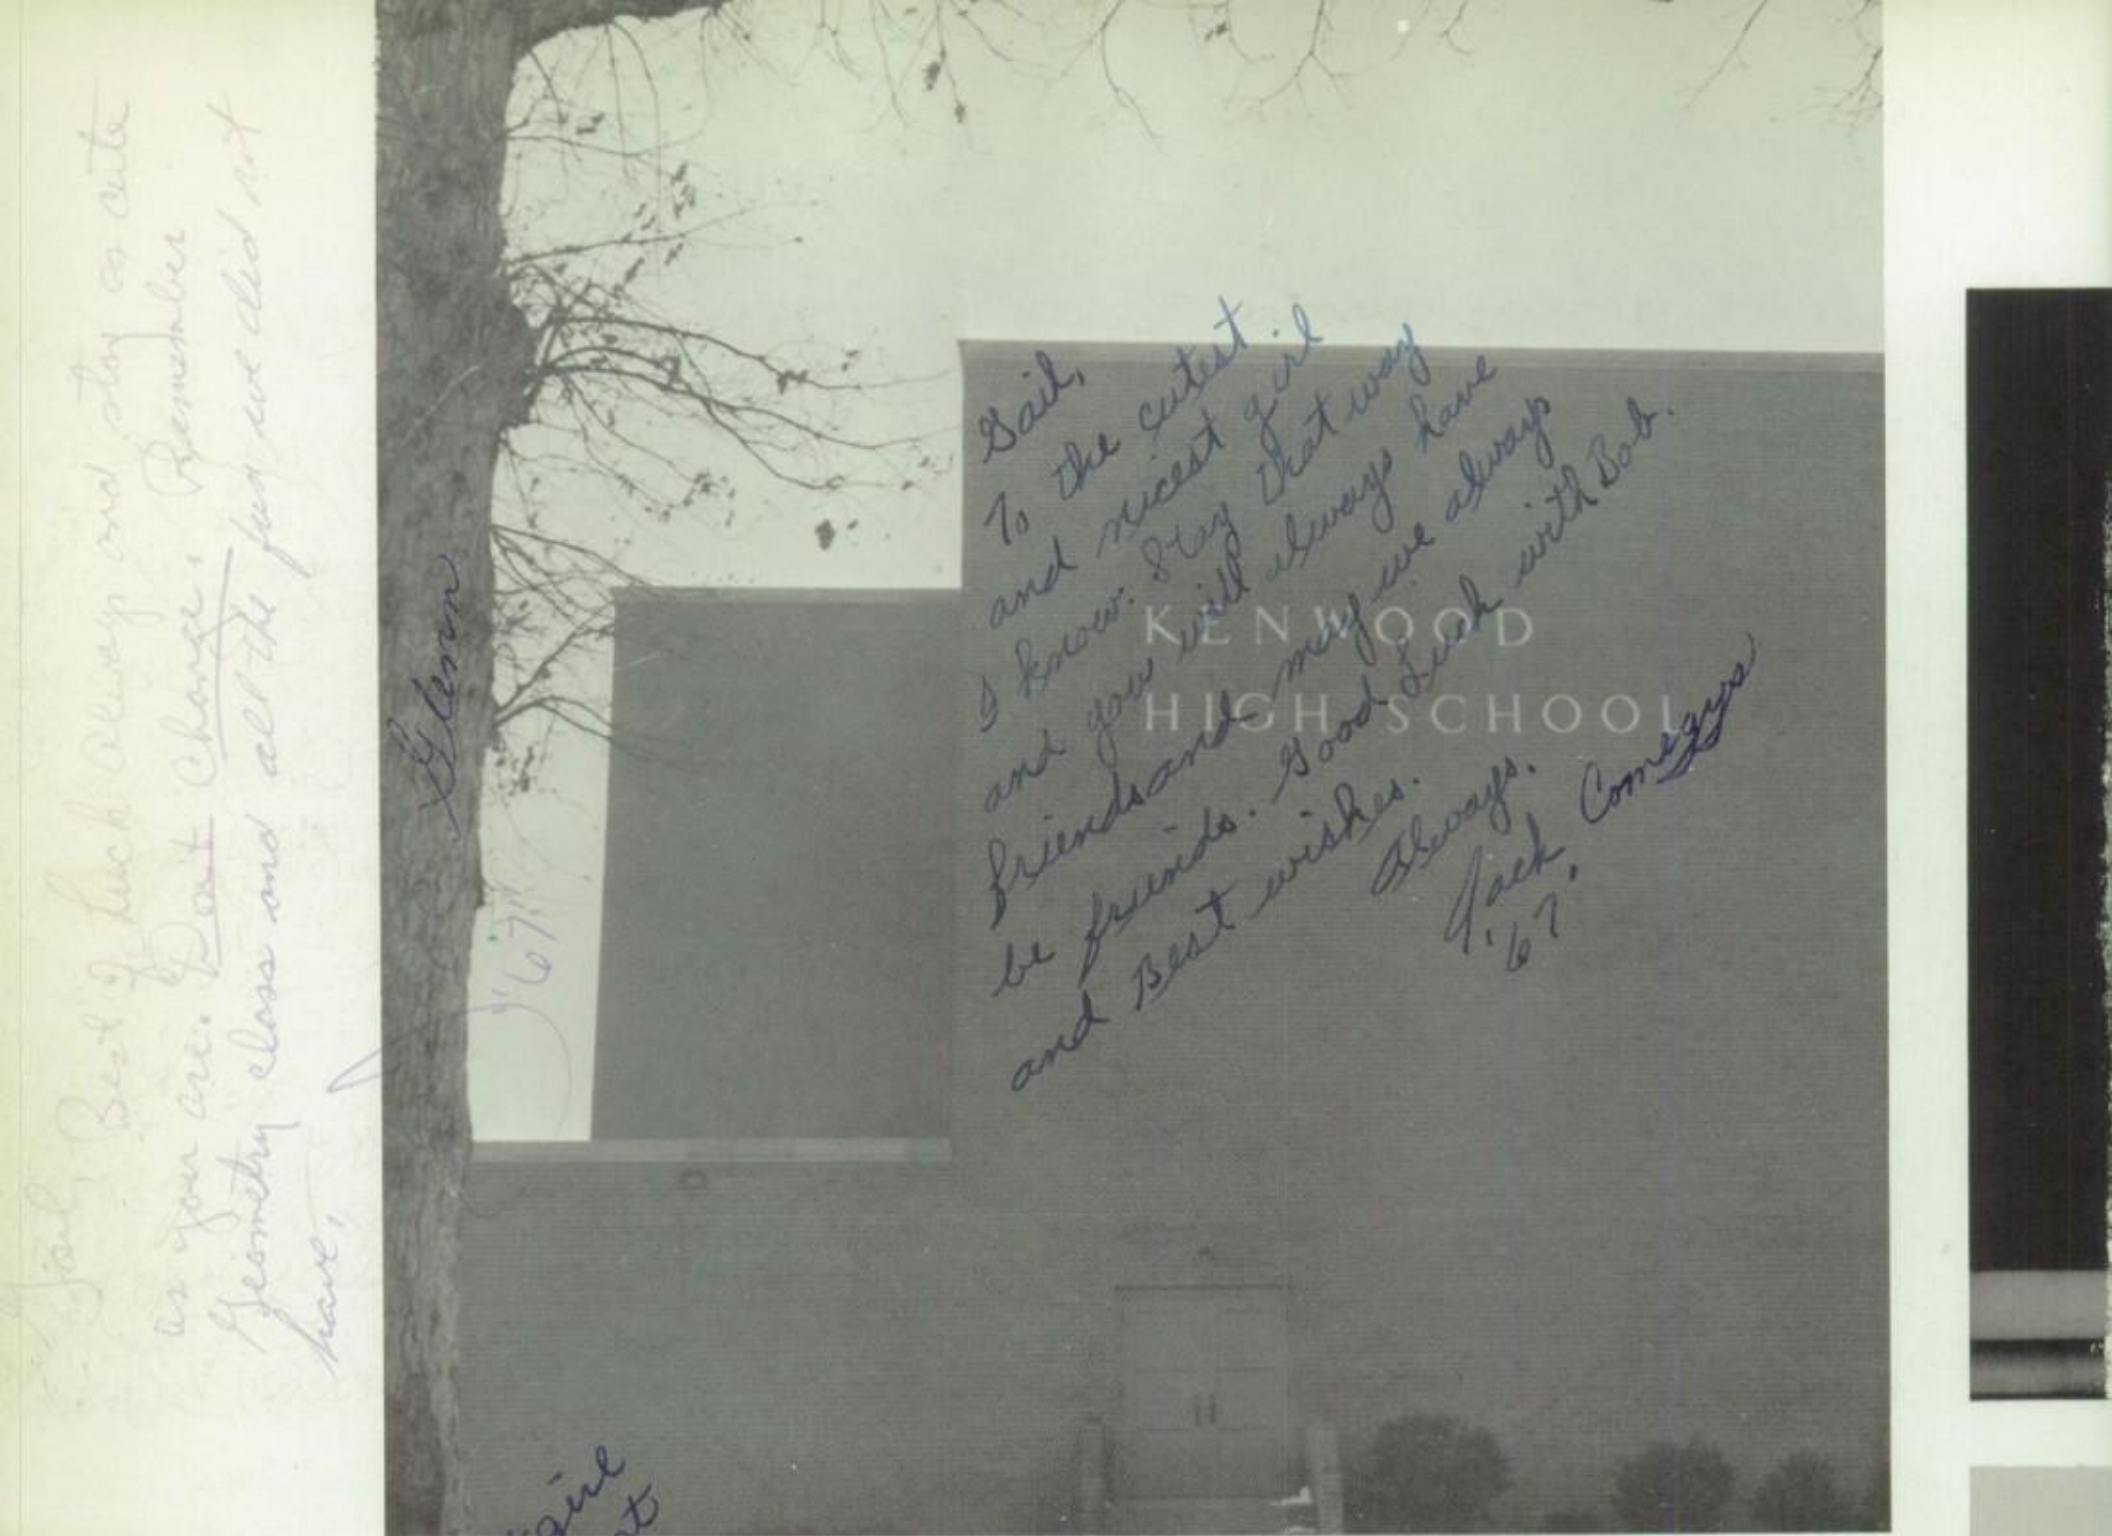 Gail,
Best of Luck always and stay as cute
as you are. Don't Change. Remember
Geometry class and all the fun we did not
have.
Glenn
"67"
Gail,
To the cutest
and nicest girl
I know. Stay that way
and you will always have
friends and may we always
be friends. Good Luck with Bob.
and Best wishes.
Always.
Jack Comegys
'67.
KENWOOD
HIGH SCHOOL
girl